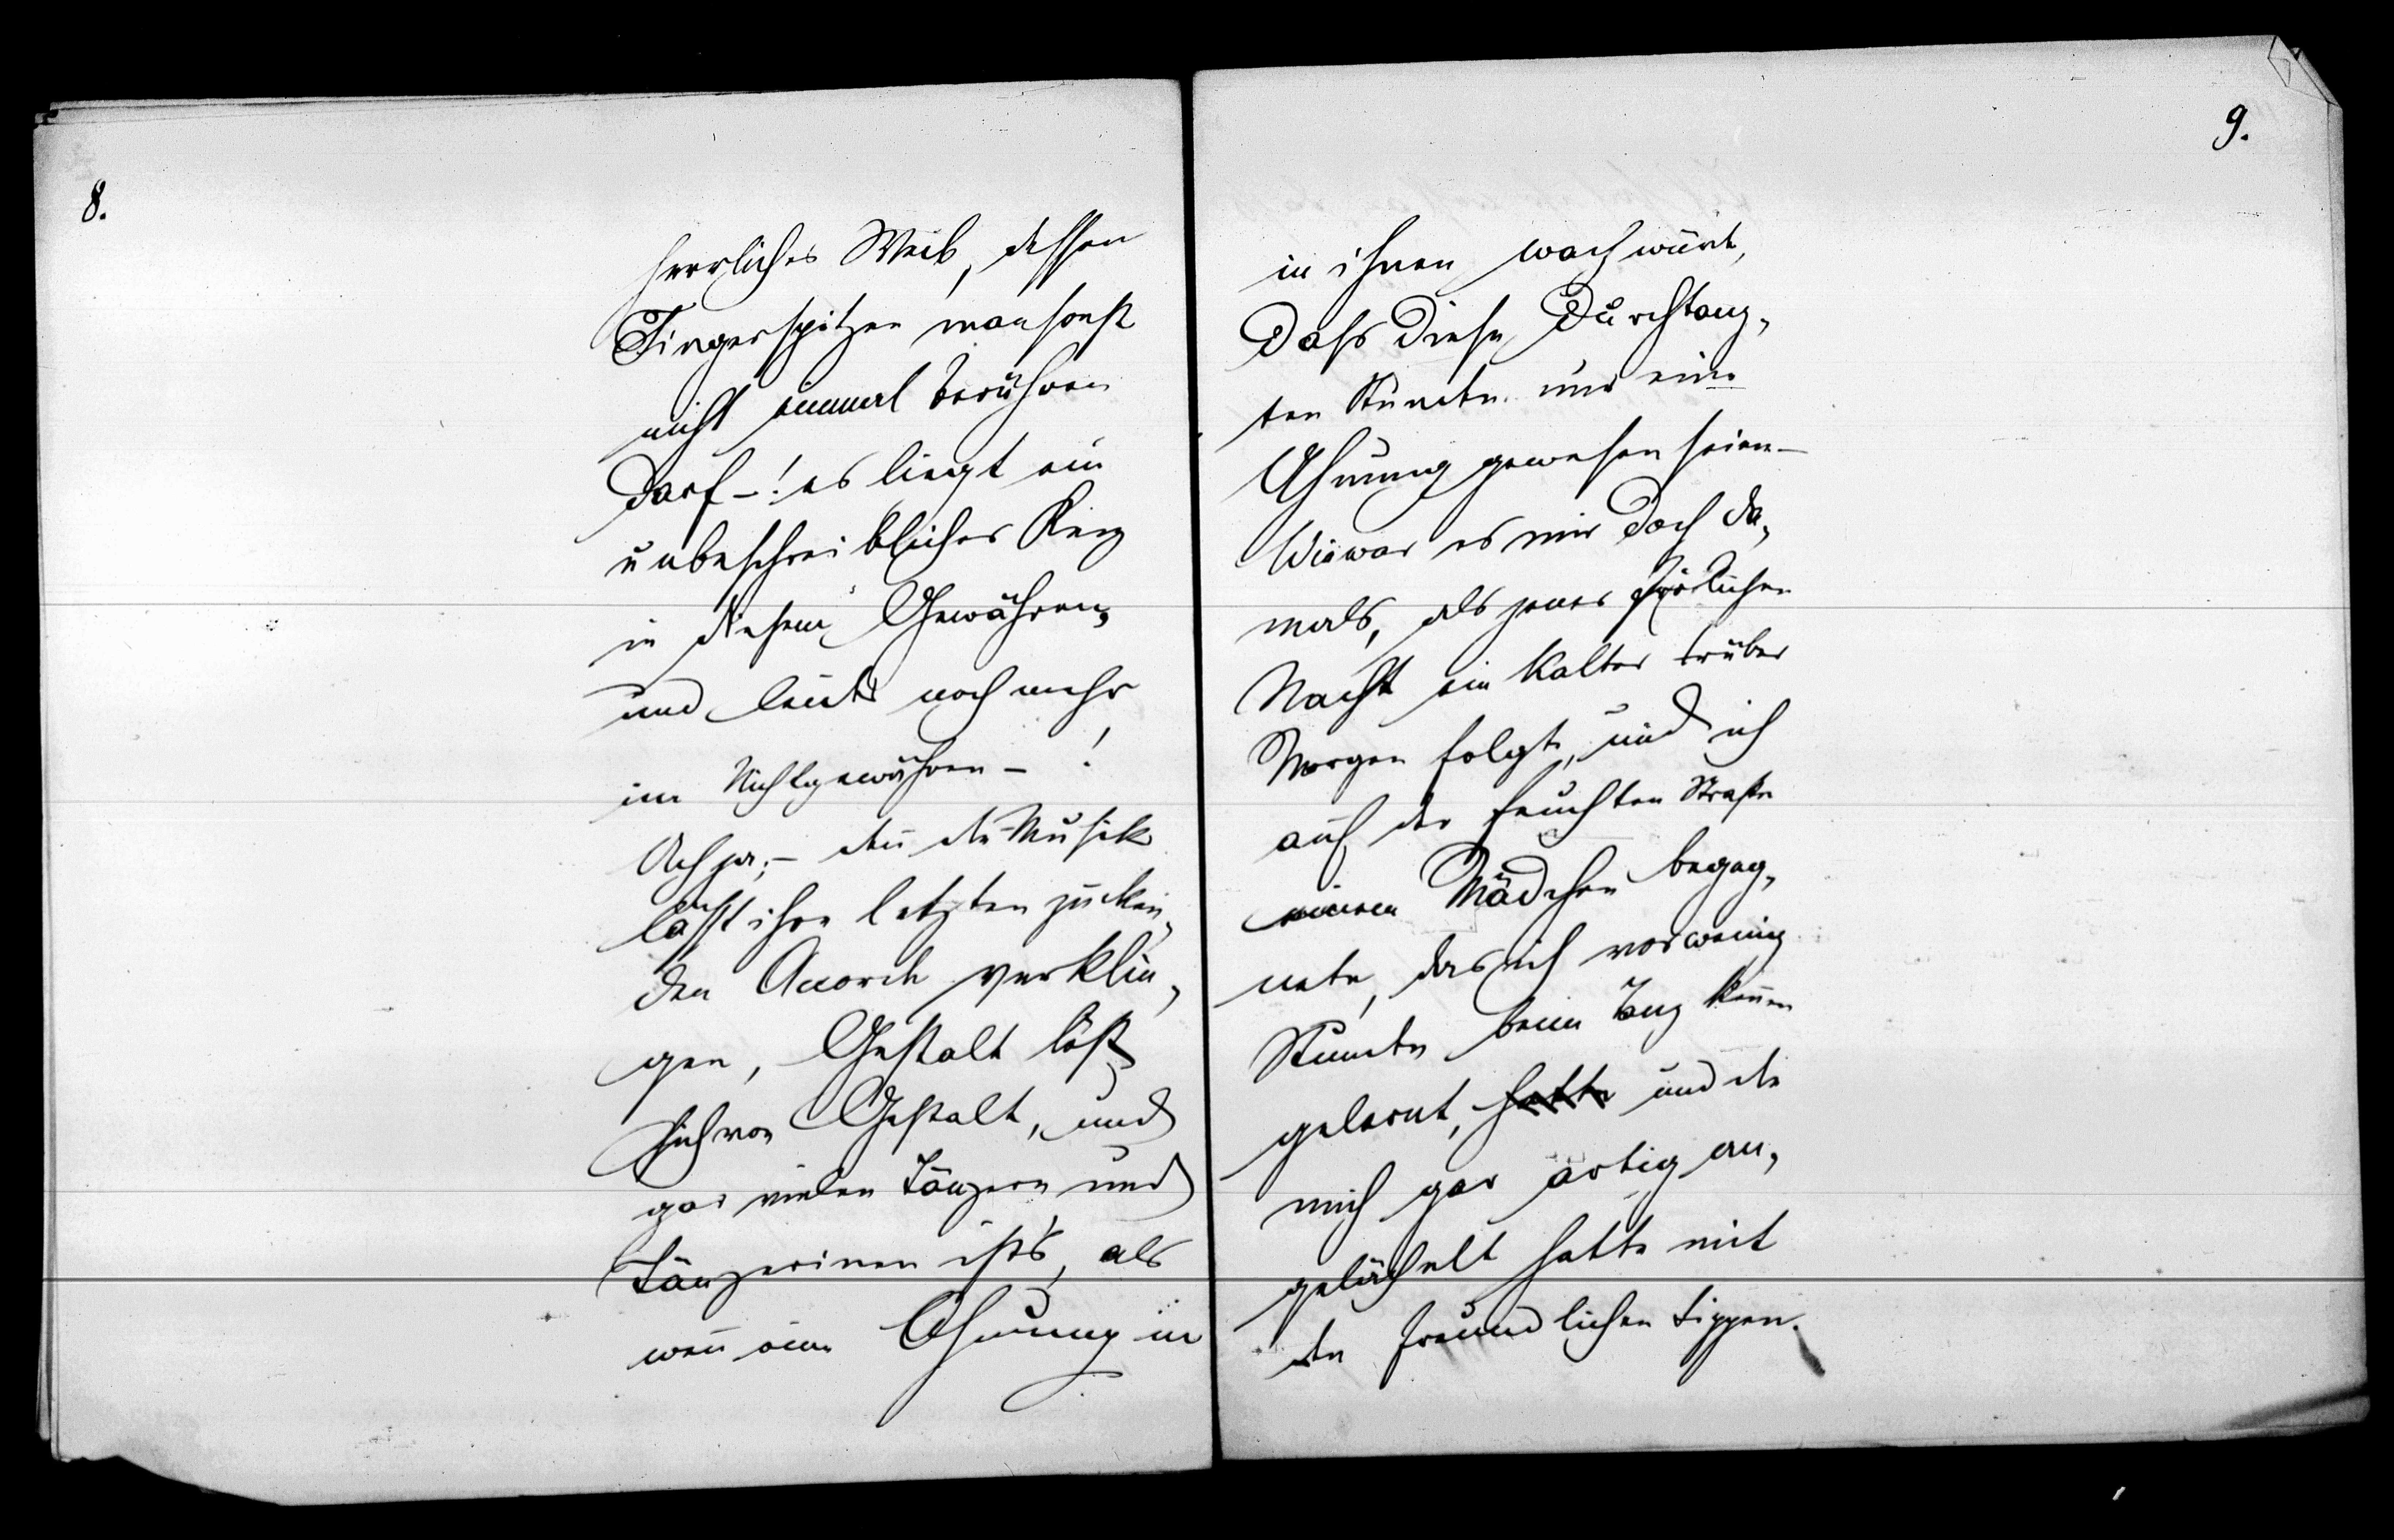 8.
herrliches Weib, dessen
Fingerspitzen man sonst
nicht einmal berühren
darf –! es liegt ein
unbeschreiblicher Reiz
in diesem Gewähren,
und leicht noch mehr
im Nichtgewähren – !
Ach ja; – den̄ die Musik
läßt ihre letzten zucken,
den Accorde verklin,
gen, Gestalt löst
sich von Gestalt, und
gar vielen Tänzern und
Tänzerinen ist's, als
wen̄ eine Ahnung in
9.
in ihnen wach würde,
dass diese durchtanz,
ten Stunden nur eine
Ahnung gewesen seien –
Wie war es mir doch da,
mals, als jener
Nacht ein kalter trüber
Morgen folgte, und ich
auf der feuchten Straße
einem Mädchen begeg,
nete, das ich vor wenig
Stunden beim Tanz ken̄en
gelernt, hatte und die
mich gar artig an,
gelächelt hatte mit
den freundlichen Lippen.